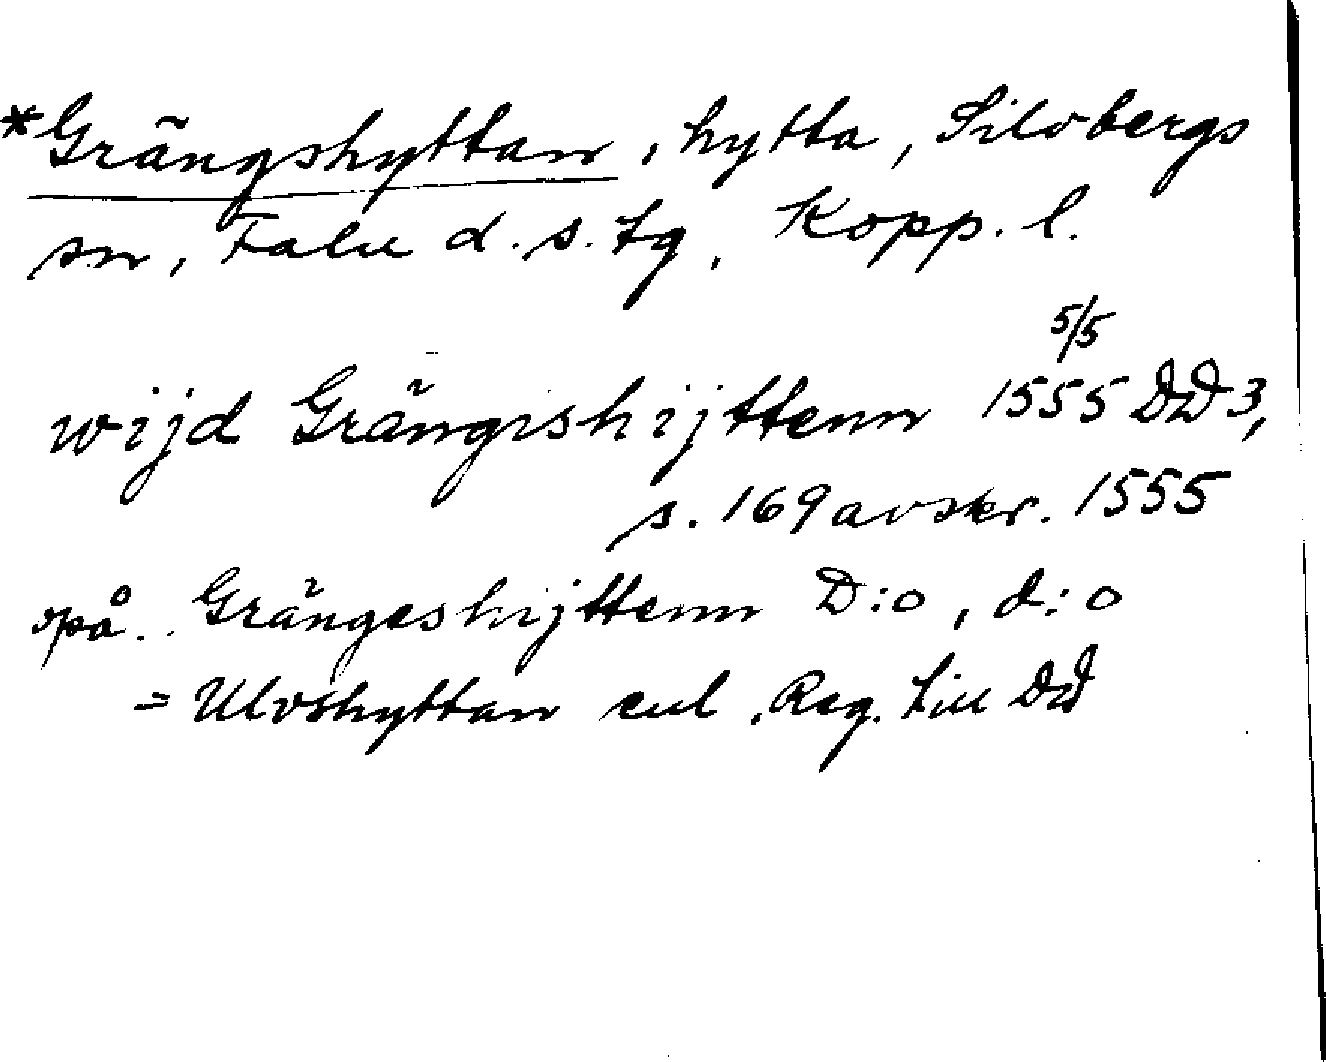 *Grängshyttan, hytta, Silvbergs
sn, Falu d.s. tg, Kopp. l.
5/5
wijd Grängishijttenn 1555 DD 3,
s. 169 avskr. 1555
opå.. Grängeshijttenn D:o, d:o
= Ulvshyttan enl. Reg. till DD